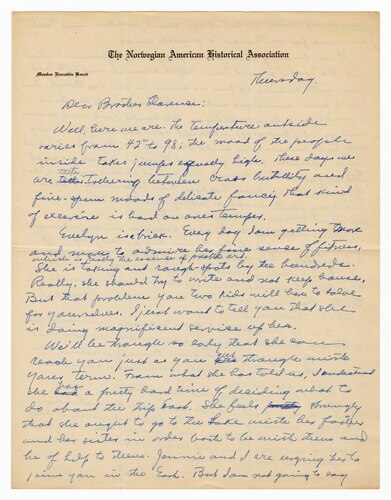 The Norwegian American Historical Association
Member Executive Board
Thursday.
Dear Brother Clarence:
Well, here we are. The temperature outside
varies from 42 to 98, the mood of the people
inside takes jumps equally high. These days we
are teetering between crass brutality and
fine-spun moods of delicate fancy. That kind
of exercise is hard on one's temper.
Evelyn is a brick. Every day I am getting more
and more to admire her fine sense of fitness,
which is really the essence of poetic art.
She is taking out rough spots by the hundreds.
Really, she should try to write and not keep house.
But that problem you two kids will have to solve
for yourselves. I just want to tell you that she
is doing magnificent service up here.
We'll be through so early that she can
reach you just as you get through with
your term. From what she has told us, I understand
she has a pretty hard time of deciding what to
do about the trip East. She feels strongly
that she ought to go to the Lake with her father
and her sister in order both to be with them and
be of help to them. Jennie and I are urging her to
join you in the East. But I am not going to say